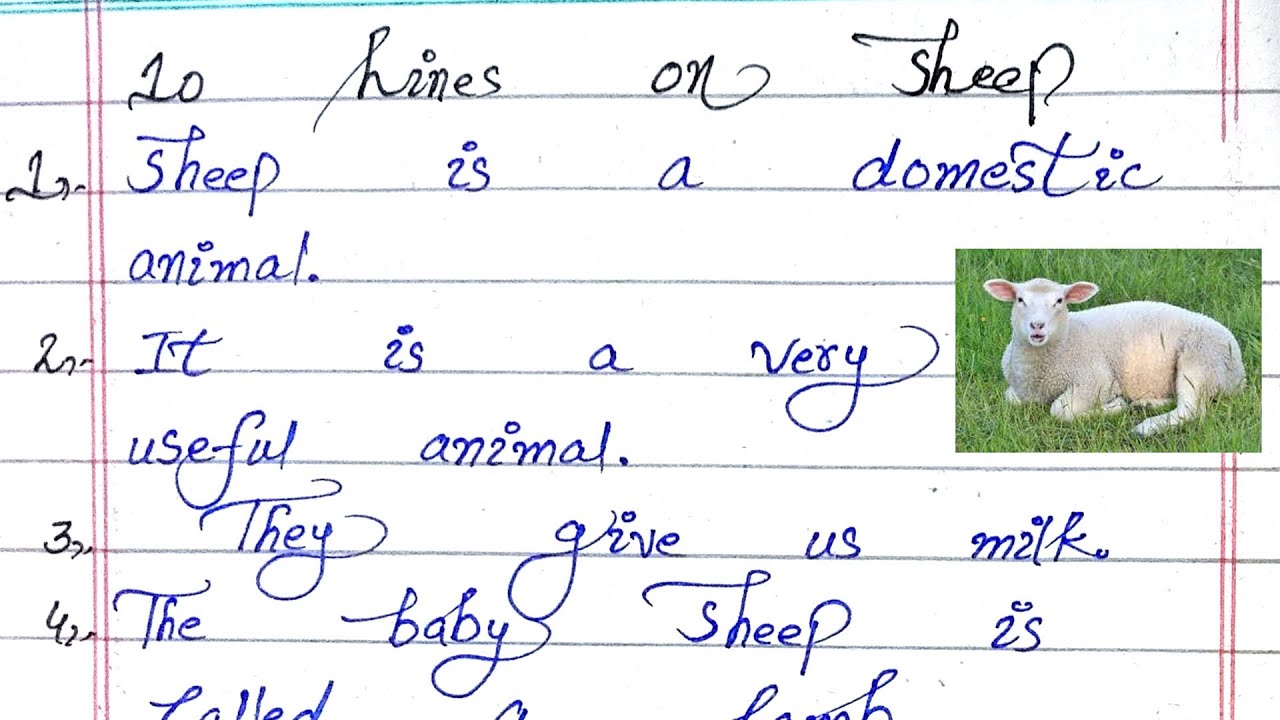 10 Lines on Sheep
1. Sheep is a domestic
animal.
2. It is a very
useful animal.
3. They give us milk.
4. The baby Sheep is
called a lamb